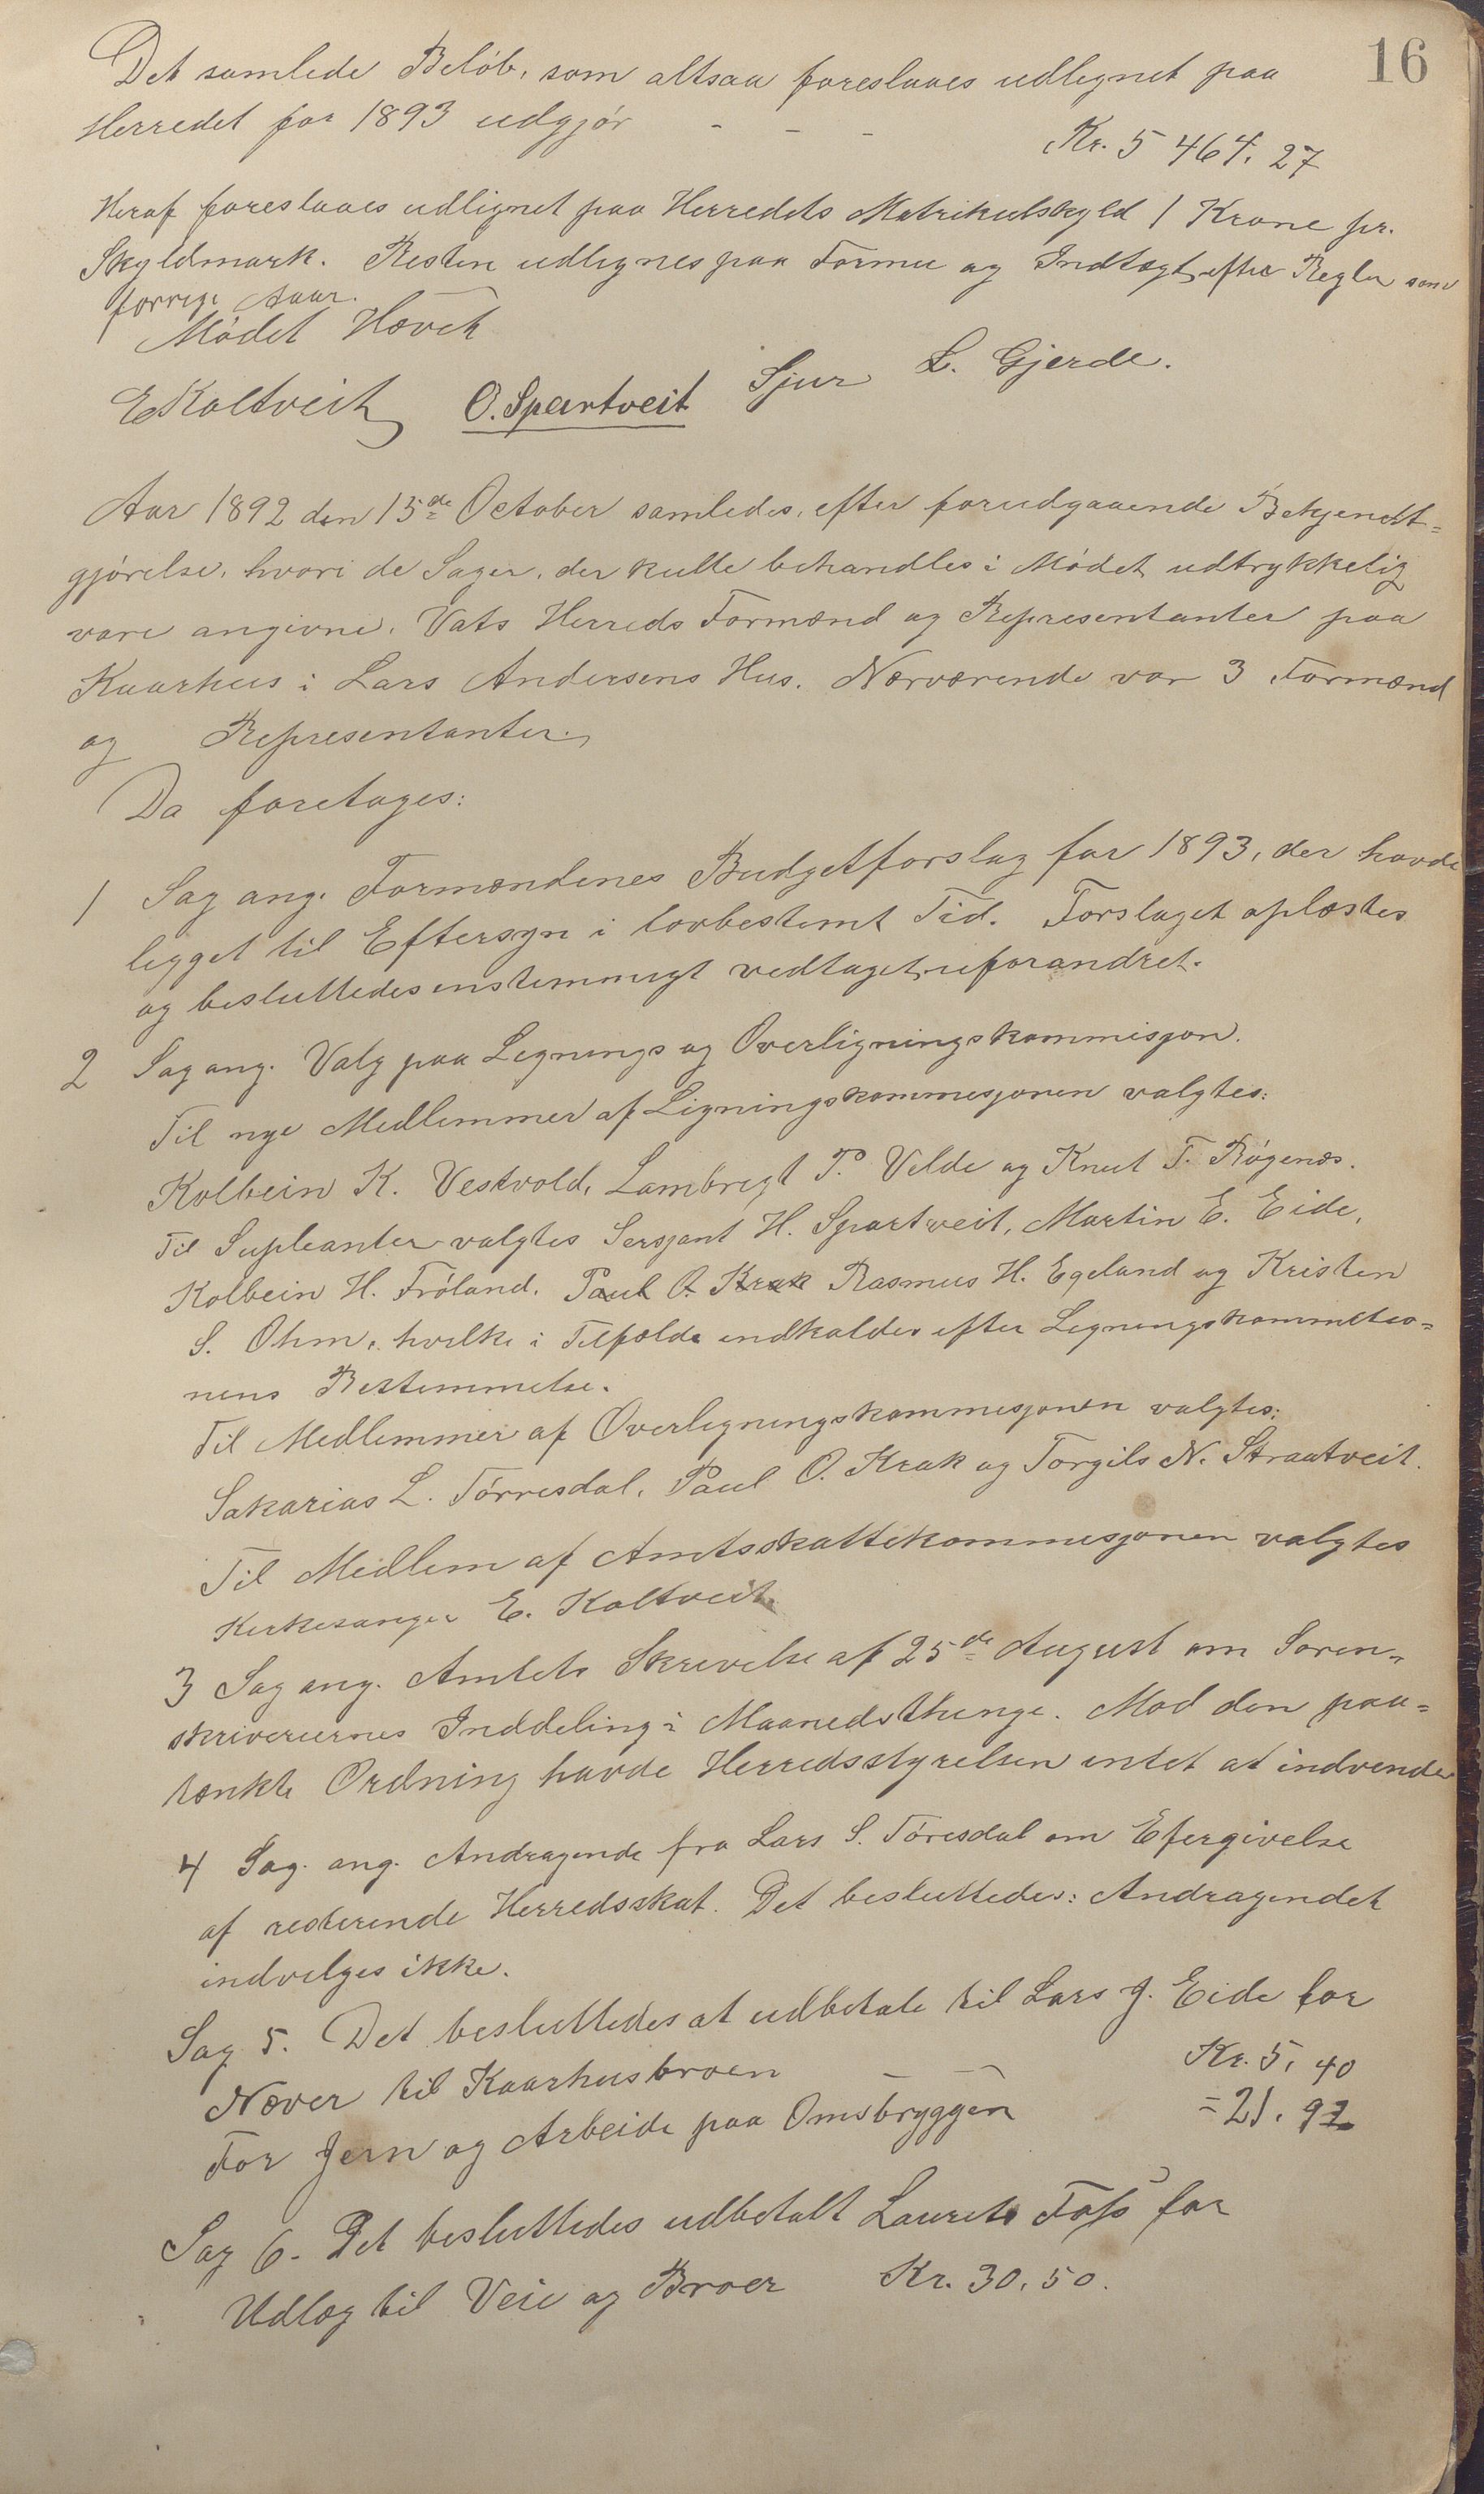 16
Det samlede Beløb, som altsaa foreslaaes udlignet paa
Herredet for 1893 udgjør - - - Kr. 5 464. 27
Heraf foreslaaes udlignet paa Herredets Matrikulskyld 1 Krone pr.
Skyldmark. Resten udlignes paa Formue og Indtægt efter Regler som
forrige Aaar.
Mødet Hævet
E Koltveit O. Spartveit Sjur L. Gjerde.
Aar 1892 den 15de October samledes, efter forudgaaende Bekjendt=
gjørelse, hvori de Sager, der kulle behandles i Mødet udtrykkelig
vare angivne, Vats Herreds Formænd og Representanter paa
Kaarhus i Lars Andersens Hus. Nærværende var 3 Formænd
og Representanter.
Da foretages:
1 Sag ang. Formændenes Budgetforslag for 1893, der havde
ligget til Eftersyn i lovbestemt Tid. Forslaget oplæstes
og besluttedes enstemmigt vedtaget uforandret.
2 Sag ang. Valg paa Lignings og Overligningskommisjon.
Til nye Medlemmer af Ligningskommesjonen valgtes:
Kolbein K. Vestvold, Lambregt P. Velde og Knut T. Røgenæs.
Til Supleanter valgtes Sersjant H. Spartveit, Martin E. Eide,
Kolbein H. Frøland, Paul O. Krak Rasmus H. Egeland og Kristen
S. Ohm, hvilke i Tilfælde indkaldes efter Ligningskommisio=
nens Bestemmelse.
Til Medlemmer af Overligningskommesjonen valgtes:
Sakarias L. Tørresdal, Paul O. Krak og Torgils N. Straatveit.
Til Medlem af Amtsskattekommesjonen valgtes
Kirkesanger E. Koltveit.
3 Sag ang. Amtets Skrivelse af 25de August om Soren=
skriveriernes Inddeling i Maanedsthinge. Mod den paa=
tænkte Ordning havde Herredsstyrelsen intet at indvende
4 Sag. ang. Andragende fra Lars S. Tøresdal om Efergivelse
af resterende Herredsskat. Det besluttedes: Andragendet
indvilges ikke.
Sag 5. Det besluttedes at udbetale til Lars J. Eide for
Næver til Kaarhusbroen - - Kr. 5, 40
For Jern og Arbeide paa Omsbryggen = 21. 92
Sag 6. Det besluttedes udbetalt Laurits Foss for
Udlæg til Veie og Broer Kr. 30, 50.